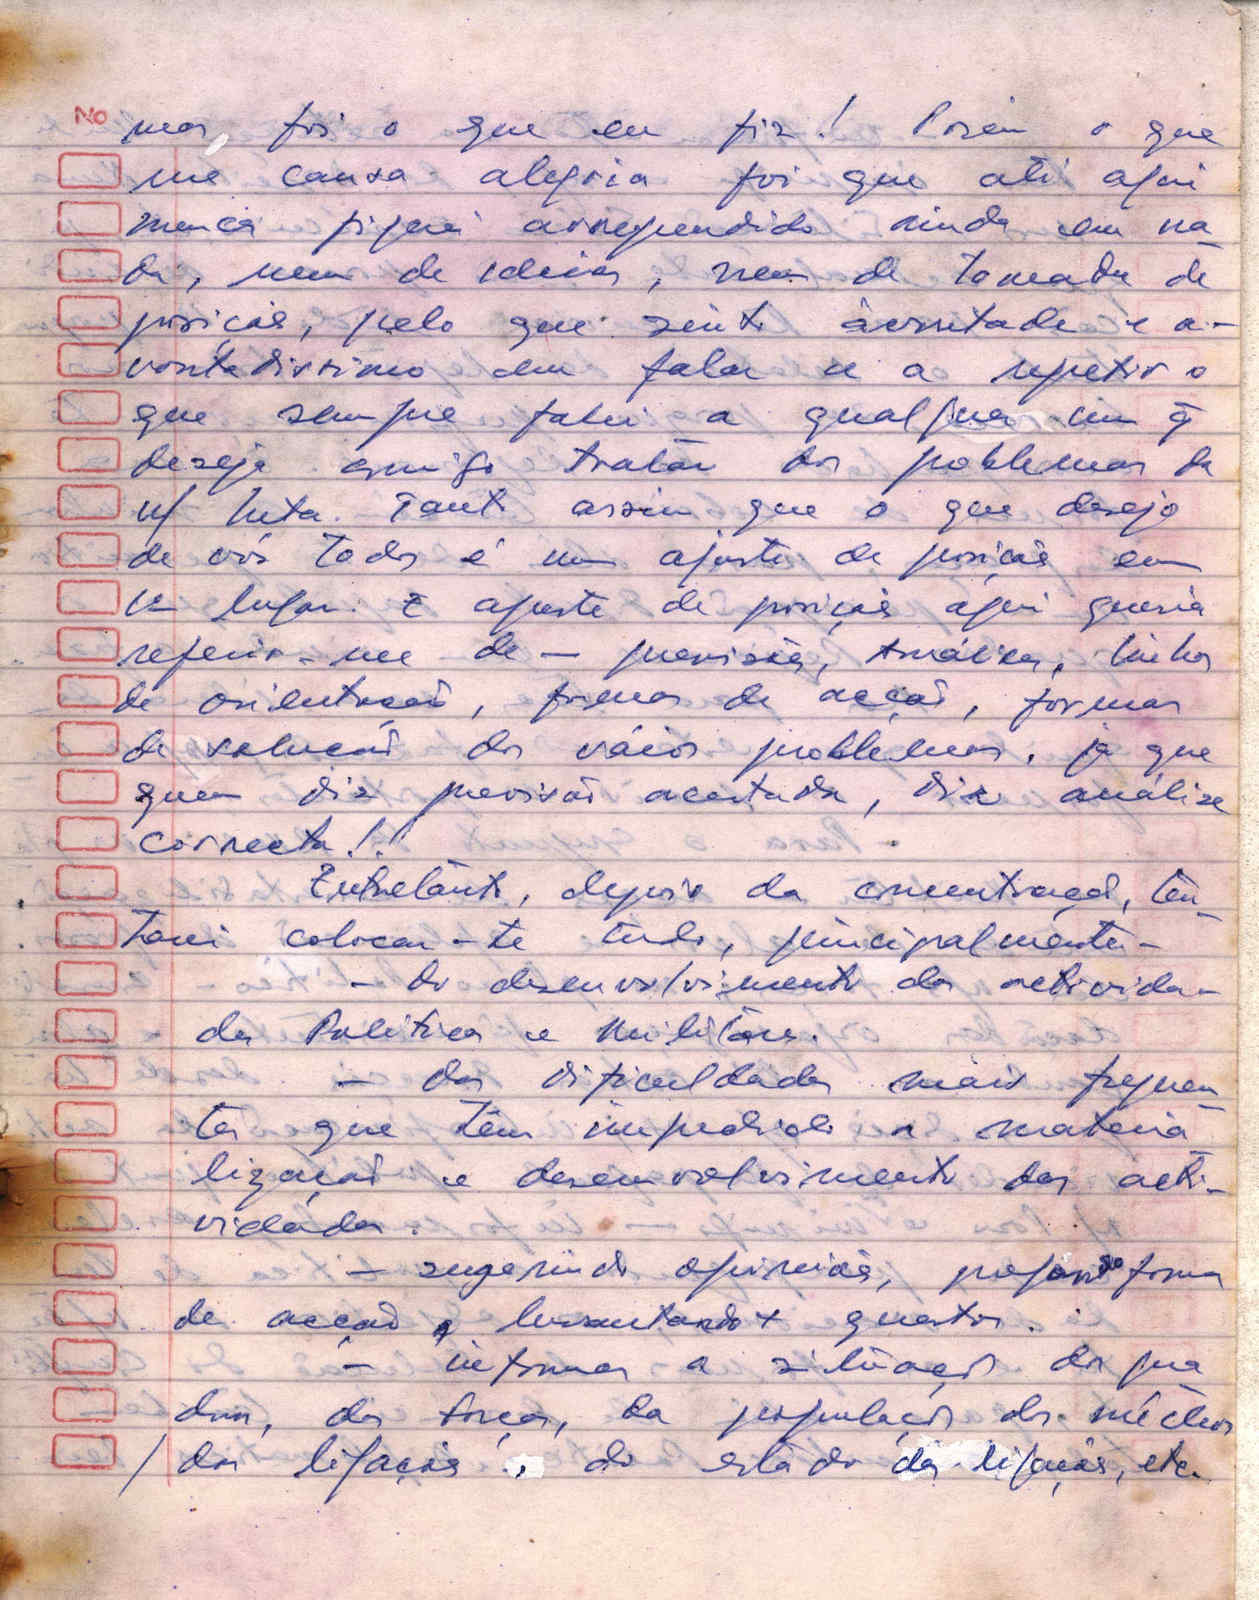 No
mas foi o que eu fiz! Porém o que
me causa alegria foi que até aqui
nunca fiquei arrependido ainda em na-
da, nem de ideias, nem de tomada de
posição, pelo que sinto àvontade e a-
vontadissimo em falar e a repetir o
que sempre falei a qualquer um q̃
deseja comigo tratar dos poblemas da
n/ luta. Tanto assim que o que desejo
de vós todos é um ajuste de posição em
1º lugar. E ajuste de posição aqui queria
referir-me de — previsões, Análises, linhas
de orientação, formas de acção, formas
de solução dos vários poblemas, já que
quem diz previsão acertada, diz análise
correcta!
Entretanto, depois da concentração, ten-
tarei colocar-te tudo, principalmente -
- do desenvolvimento das activida-
des Politica e Militares.
- das dificuldades mais frequen-
tes que têm impedido a materia-
lização e desenvolvimento das acti-
vidades.
- sugerindo opiniões, propondo forma
de acção, levantando questões.
- informar a situação dos qua-
dros, das forças, da população dos
/ das ligações, do estado das ligações, etc.